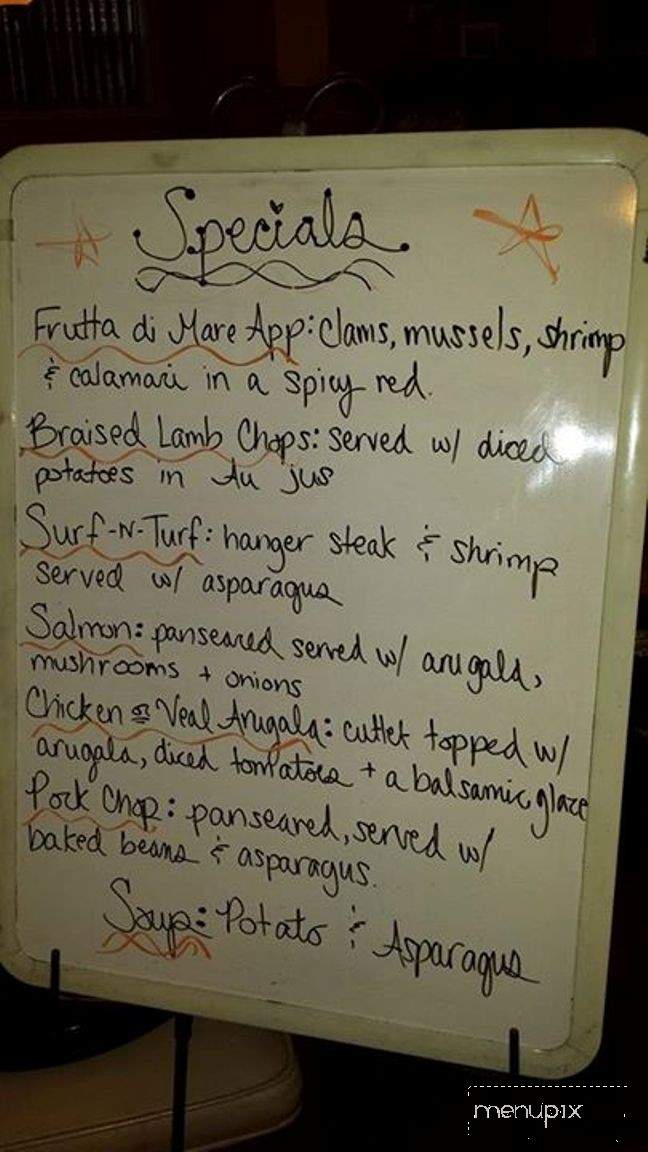 Specials
Frutta di Mare App: Clams, mussels, shrimp
& calamari in a spicy red.
Braised Lamb Chops: served w/ diced
potatoes in Au jus
Surf-N-Turf: hanger steak & shrimp
served w/ asparagus
Salmon: panseared served w/ arugala,
mushrooms + onions
Chicken or Veal Arugala: cutlet topped w/
arugala, diced tomatoes + a balsamic glaze
Pork Chop: panseared, served w/
baked beans & asparagus.
Soup: Potato & Asparagus
menupix